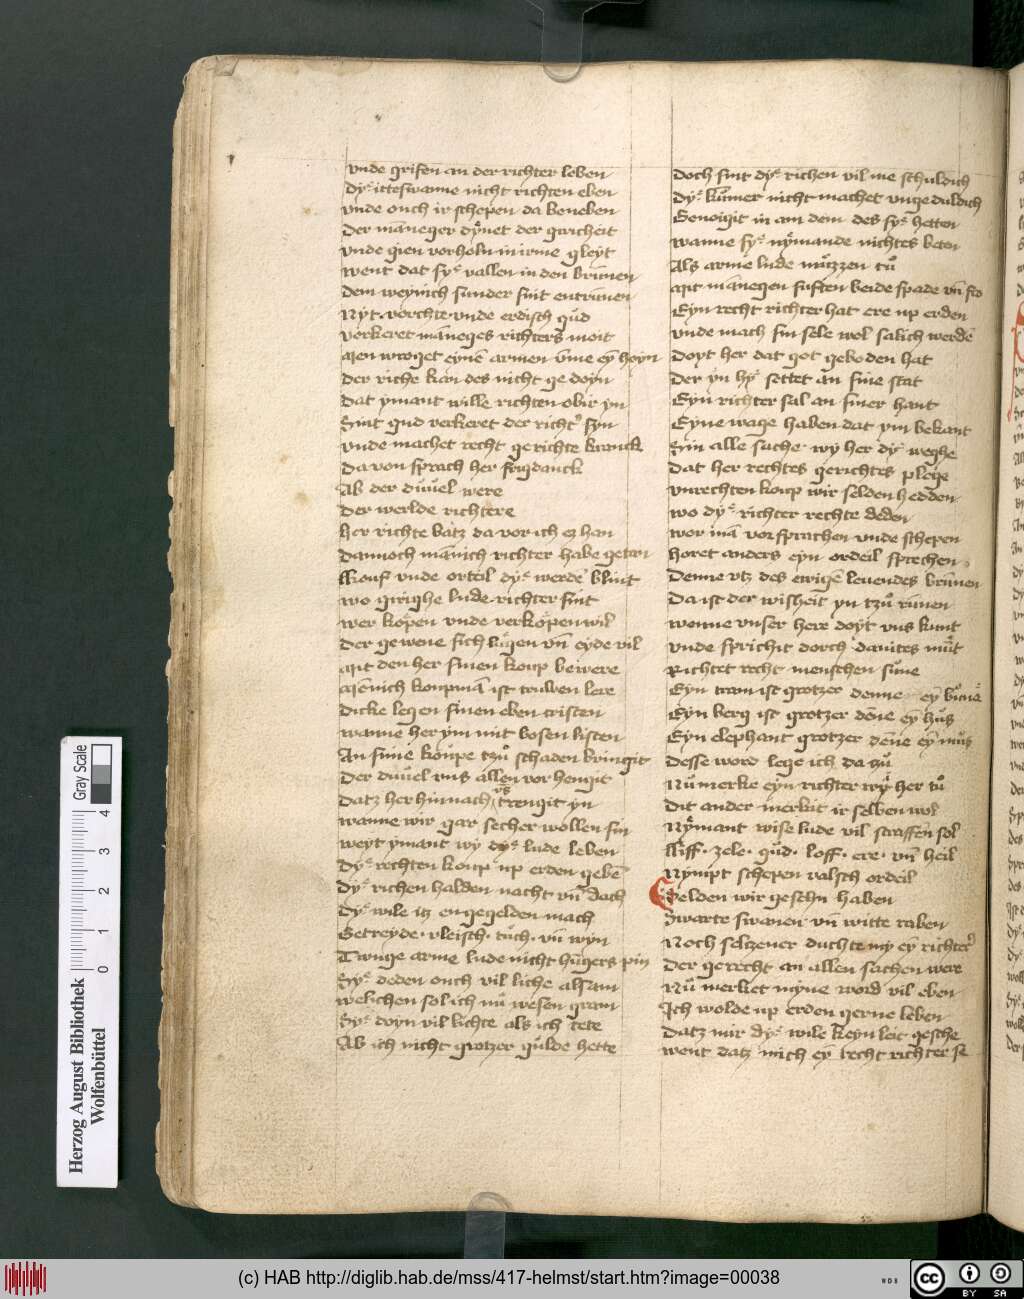 vnde grifen an der richter leben
dyͤ itteswanne nicht richten eben
vnde ouch ir schepen da beneben
Der māneger dyͤnet der gircheit
vnde gien vorholn mirme gleyt
went dat syͤ vallen in den brūnen
Dem weynich sunder sint entrūnen
Nyt vorchte vnde erdisch gůd
vorkeret māneges richters moit
Men wroget eynē armen vm̄e eȳ hoyn
Der riche kan des nicht ge doyn
Dat ymant wille richten obir yn
Sint gud verkeret der richtͬ syn
vnde machet recht gerichte kranck
Da von sprach her frigdanck
Ab der duͤuel were
Der werlde richtere
Her richte batz da vor ich ez han
Dannoch mānich richter habe getan
Kouf vnde orteil dyͤ werdē blint
wo girighe lude richter sint
wer kopen vnde verkopen wil
Der gewene sich lugen vn̄ eyde vil
Mit den her sinen koup bewere
Mēnich koupmā ist truwen lere
Dicke legen sinen eben cristen
wanne her ym mit bosen listen
An sime koupe tzů schaden bringit
Der duͤuel vns allen vor hengit
Datz her hirnach vs trengit yn
wanne wir gar secher wollen sin
weyt ymant wy dyͤ lude leben
Dyͤ rechten koup up erden gebē
Dyͤ richen halden nacht vn̄ dach
Dyͤ wile iz en gegelden mach
Getreyde vleisch tůch vn̄ wyn
Twinge arme lude nicht hūgers pin
Syͤ deden ouch vil liche alsam
welichen sol ich nů wesen gram
Syͤ doyn vil lichte als ich tete
Ab ich nicht grotzer gulde hette
Doch sint dyͤ richen vil me schuldich
Dyͤ kūmer nicht machet vngeduldich
Genoigit in am dem des syͤ hetten
wanne syͤ nymande nichtes beten
Als arme lude muͦzzen tů
Mit mānegen suften beide spade vn̄ fro
Eyn recht richter hat ere up erden
vnde mach sin sele wol salich werdē
Doyt her dat got geboden hat
Der yn hyͤ settet an sine stat
Eyn richter sal an siner hant
Eyne wage haben dat ym bekant
Sin alle sache wy her dyͤ weghe
Dat her rechtes gerichtes plege
vnrechten koup wir selden hedden
wo dyͤ richter rechte deden
wor mā vorsprachen vnde schepen
Horet anders eyn ordeil sprechen
Denne vtz des ewigē leuendes brūnen
Da ist der wisheit yn tzů rūnen
wenne vnser here doyt vns kunt
vnde sprichit dorch dauites mūt
Richtet recht menschen sūne
Eyn tram ist grotzer denne eȳ bome
Eyn berg ist grotzer dēne eȳ hůs
Eyn elephant grotzer dēne eȳ mus
Desse word lege ich da zů
Nů merke eyn richter wy her tů
Dit ander merkit ir selben wol
Nymant wise lude vil straffen sol
Liff zele gůd loff ere vn̄ heil
Nympt schepen valsch ordeil
Selden wir gesehn haben
Swarte swanen vn̄ witte raben
Noch seltzener duchte my eȳ richterͬ
Der gerecht an allen sachen were
Nů merket myne word vil eben
Ich wolde up erden gerne leben
Datz mir dyͤ wile keyn leit gesche
went datz mich eȳ recht richter se
Herzog August Bibliothek
Wolfenbüttel
Gray Scale
0 1 2 3 4
(c) HAB http://diglib.hab.de/mss/417-helmst/start.htm?image=00038
WDB
cc BY SA